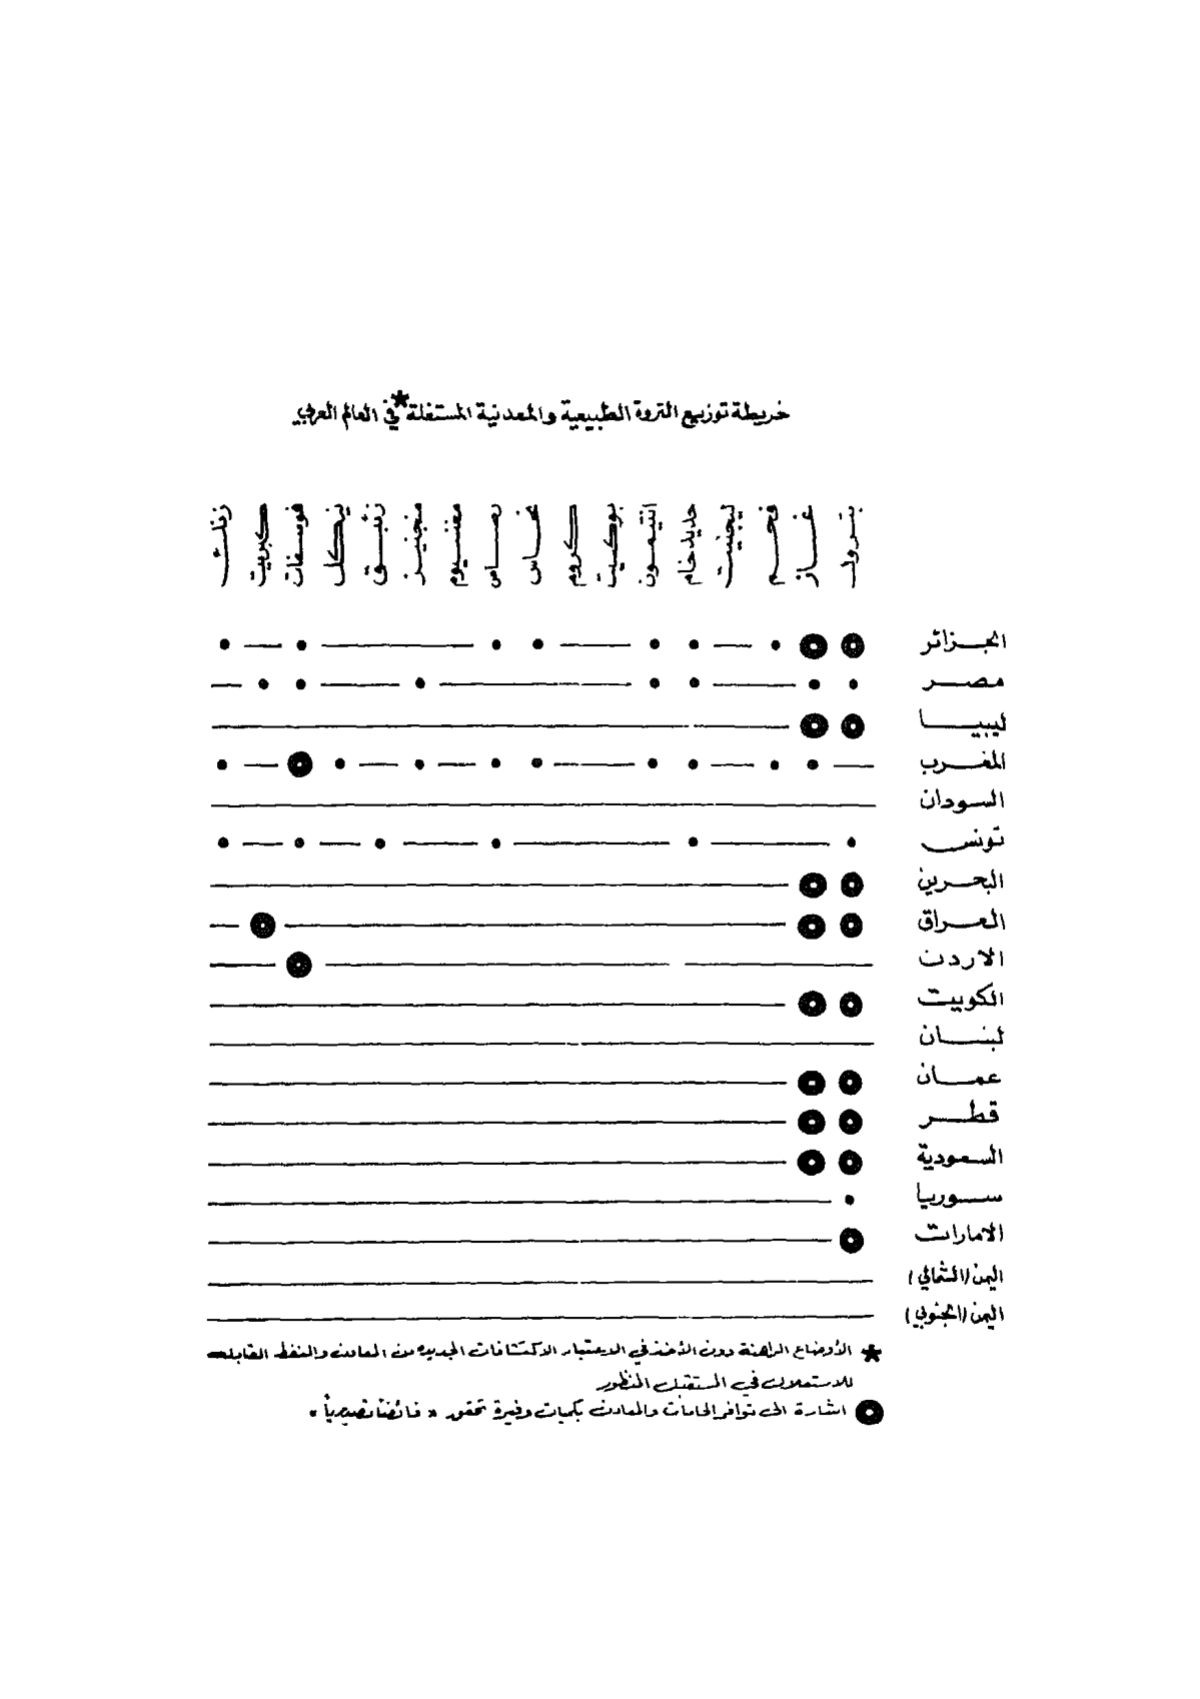 خريطة توزيع الثروة الطبيعية والمعدنية المستغلة* في العالم العربي
بترول غاز فحم ليجنيت حديد خام انتيمون بوكيت كروم نحاس رصاص مغنسيوم منجنيز زئبق نيكل فوسفات كبريت زنك
الجزائر
مصر
ليبيا
المغرب
السودان
تونس
البحرين
العراق
الاردن
الكويت
لبنان
عمان
قطر
السعودية
سوريا
الامارات
اليمن (الشمالي)
اليمن (الجنوبي)
* الأوضاع الراهنة دون الأخذ في الاعتبار الاكتشافات الجديده من المعادن والنفط القابلة
للاستغلال في المستقبل المنظور
اشارة الى توافر الخامات والمعادن بكميات وفيرة تحقق « فائضا تصديرياً »